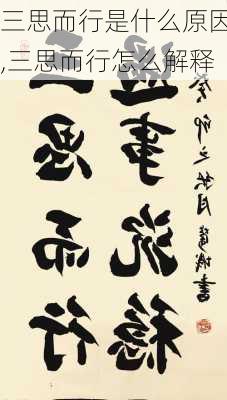 三思而行是什么原因
,三思而行怎么解释
三思而行
遇事沉稳
癸卯之秋月